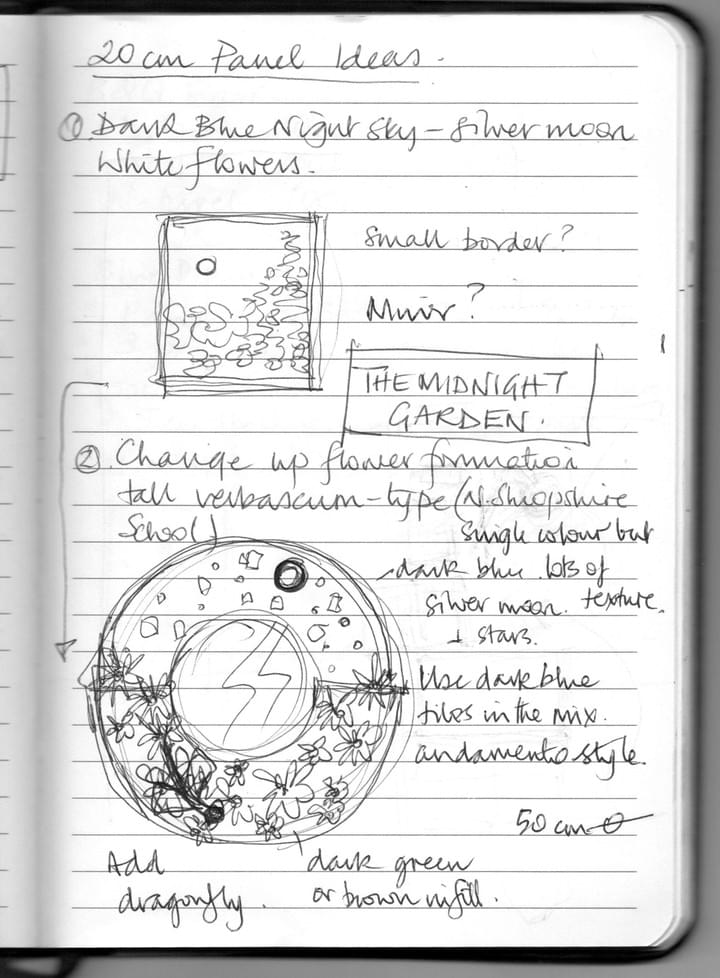 20cm Panel Ideas.
① Dark Blue Night Sky – silver moon
White flowers.
Small border?
Mirror?
THE MIDNIGHT
GARDEN.
② Change up flower formation
tall verbascum-type (N. Shropshire
School)
Single colour but
dark blue lots of
silver moon. texture.
+ stars.
Use dark blue
tiles in the mix.
andamento style.
50cm
Add
dragonfly.
dark green
or brown infill.